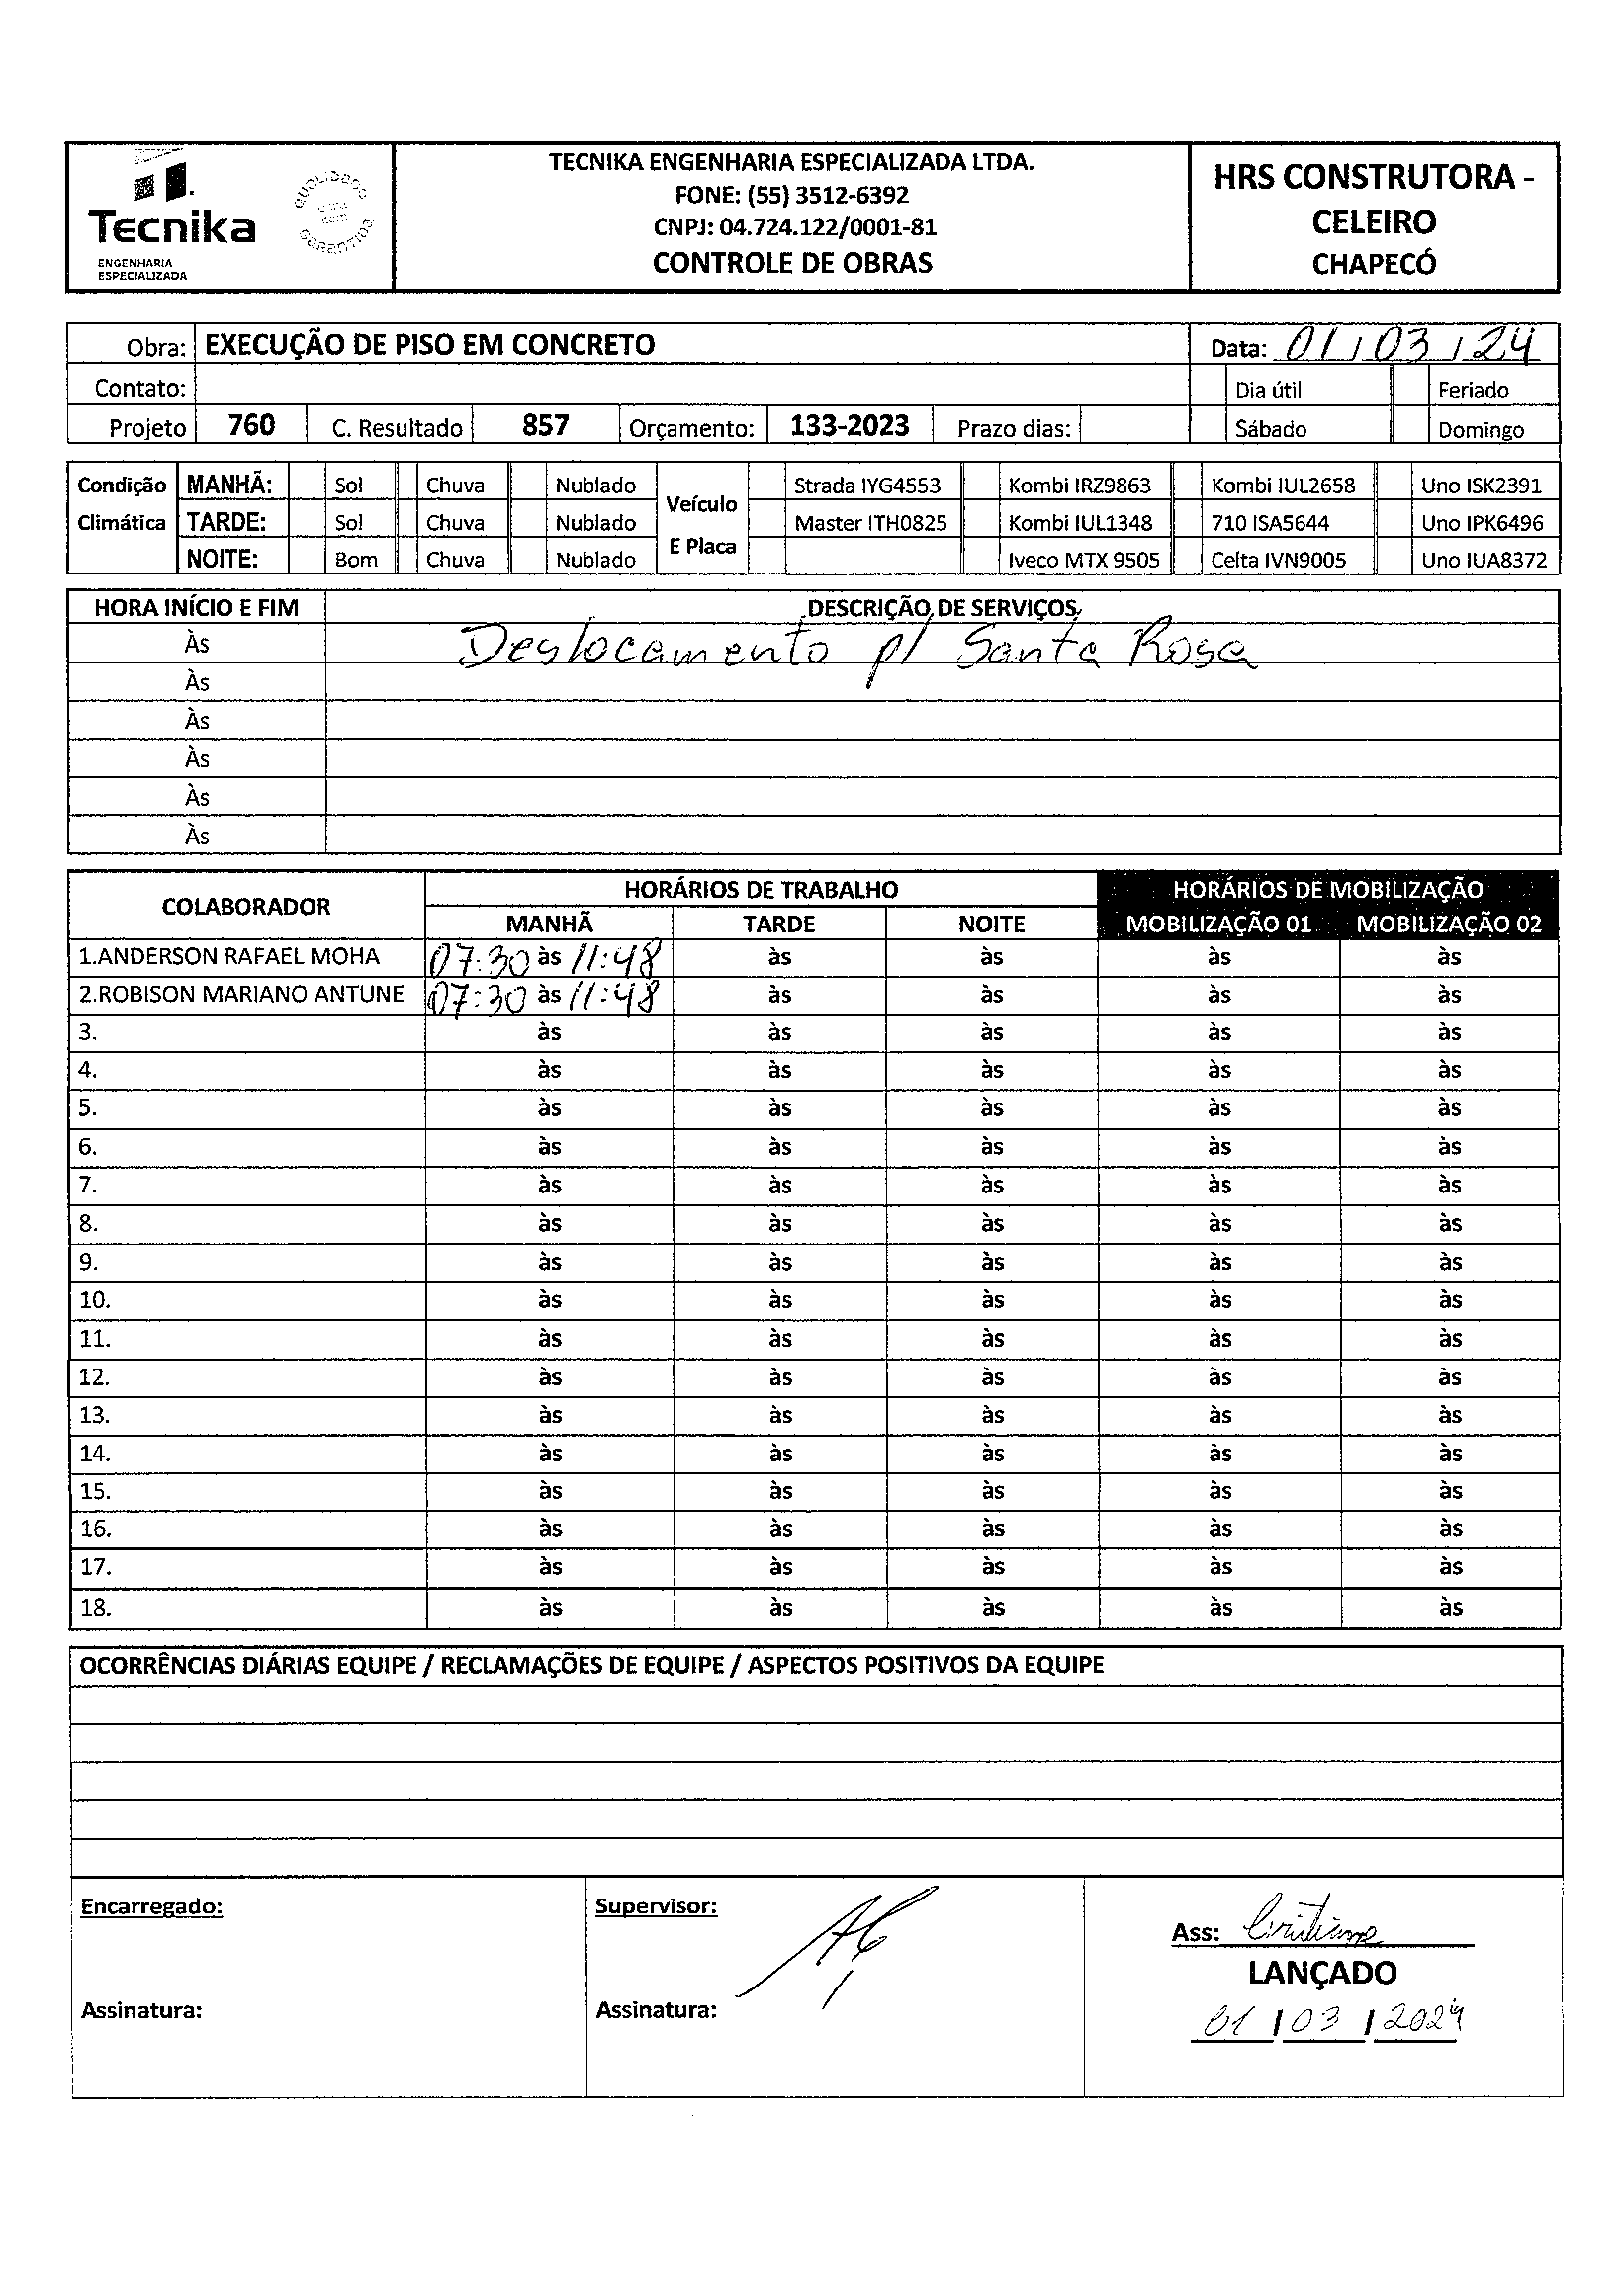 Tecnika
ENGENHARIA
ESPECIALIZADA
QUALIDADE
GARANTIDA
TECNIKA ENGENHARIA ESPECIALIZADA LTDA.
FONE: (55) 3512-6392
CNPJ: 04.724.122/0001-81
CONTROLE DE OBRAS
HRS CONSTRUTORA -
CELEIRO
CHAPECÓ
Obra: EXECUÇÃO DE PISO EM CONCRETO Data: 01/03/24
Contato: Dia útil Feriado
Projeto 760 C. Resultado 857 Orçamento: 133-2023 Prazo dias: Sábado Domingo
Condição Climática MANHÃ: Sol Chuva Nublado Veículo E Placa Strada IYG4553 Kombi IRZ9863 Kombi IUL2658 Uno ISK2391
TARDE: Sol Chuva Nublado Master ITH0825 Kombi IUL1348 710 ISA5644 Uno IPK6496
NOITE: Bom Chuva Nublado Iveco MTX 9505 Celta IVN9005 Uno IUA8372
HORA INÍCIO E FIM DESCRIÇÃO DE SERVIÇOS
Às Deslocamento p/ Santa Rosa
Às
Às
Às
Às
Às
COLABORADOR HORÁRIOS DE TRABALHO HORÁRIOS DE MOBILIZAÇÃO
MANHÃ TARDE NOITE MOBILIZAÇÃO 01 MOBILIZAÇÃO 02
1.ANDERSON RAFAEL MOHA 07:30 às 11:48 às às às às
2.ROBISON MARIANO ANTUNE 07:30 às 11:48 às às às às
3. às às às às às
4. às às às às às
5. às às às às às
6. às às às às às
7. às às às às às
8. às às às às às
9. às às às às às
10. às às às às às
11. às às às às às
12. às às às às às
13. às às às às às
14. às às às às às
15. às às às às às
16. às às às às às
17. às às às às às
18. às às às às às
OCORRÊNCIAS DIÁRIAS EQUIPE / RECLAMAÇÕES DE EQUIPE / ASPECTOS POSITIVOS DA EQUIPE
Encarregado: Supervisor:
Ass: Cristiane
LANÇADO
Assinatura: Assinatura:
01/03/2024